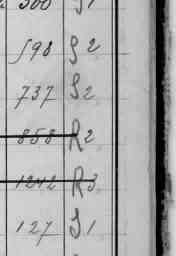 598 S2
737 S2
858 R2
1242 R3
127 S1